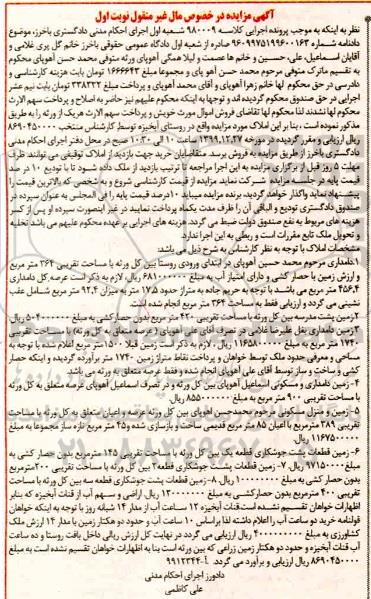 آگهی مزایده در خصوص مال غیر منقول نوبت اول
نظر به اینکه به موجب پرونده اجرایی کلاسه ۹۸۰۰۰۹ شعبه اول اجرای احکام مدنی دادگستری باخرز، موضوع
دادنامه شماره ۹۶۰۹۹۷۵۱۹۹۶۰۰۱۶۳ صادره از شعبه اول دادگاه عمومی حقوقی باخرز خانم گل پری غلامی و
آقایان اسماعیل، علی، حسین و خانم ها عصمت و لیلا همگی آهوپای ورثه متوفی محمد حسن آهوپای محکوم
به تقسیم ماترک متوفی مرحوم محمد حسن آهو پای و مجموعا مبلغ ۱۶۶۶۶۴۳ تومان بابت هزینه کارشناسی و
دادرسی در حق محکوم لها خانم زهرا آهوپای و آقای محمد آهوپای و پرداخت مبلغ ۲۳۸۳۲۲ تومان بابت نیم عشر
اجرایی در حق صندوق محکوم گردیده اند و توجها به اینکه محکوم علیهم نیز حاضر به اصلاح و پرداخت سهم الارث
محکوم لها نشدند لذا محکوم لها تقاضای فروش اموال مورث خویش و پرداخت سهم الارث هریک از ورثه را به طریق
مذکور نموده است، بنا بر این املاک مورد مزایده واقع در روستای آبخیزه توسط کارشناس منتخب ۸۶۹۰۴۵۰۰۰۰
ریال ارزیابی و مقرر گردیده در مورخه ۱۳۹۹،۱۲،۲۷ ساعت ۱۰ الی ۱۰:۳۰ صبح در محل دفتر اجرای احکام مدنی
دادگستری باخرز از طریق مزایده به فروش برسد. متقاضیان خرید جهت بازدید از املاک توقیفی می توانند ظرف
مهلت ۵ روز قبل از برگزاری مزایده به این اجرا مراجعه تا ترتیب بازدید از ملک داده شود تا با تودیع ۱۰ در صد
قیمت پایه در جلسه مزایده شرکت نماید مزایده از قیمت کارشناسی شروع و به شخصی که بالاترین قیمت را
پیشنهاد نماید واگذار خواهد گردید. برنده مزایده میباید ۱۰درصد قیمت پایه را فی المجلس به عنوان سپرده در
صندوق دادگستری تودیع و الباقی آن را ظرف مدت یکماه پرداخت نمایید در غیر اینصورت سپرده او پس از کسر
هزینه های مربوط به نفع صندوق دولت ضبط می گردد. هزینه های اجرایی بر عهده محکوم علیهم می باشد تخلیه
و تحویل ملک تابع مقررات است و ربطی به این اجرا ندارد.
مشخصات املاک با توجه به نظر کارشناس به شرح ذیل می باشد:
۱- دامداری مرحوم محمد حسین آهوپای در ابتدای ورودی روستا بین کل ورثه با مساحت تقریبی ۲۶۴ متر مربع
و ارزش زمین با حصار کشی و دارای امتیاز آب به مبلغ ۶۸۱۰۰۰۰۰۰ ریال، لازم به ذکر است عرصه کل دامداری
۴۵۶,۴ متر مربع می باشد با توجه به حریم جاده به متراژ حدود ۱۷,۵ متر به میزان ۹۲,۴ متر مربع شامل عقب
نشینی می گردد و ارزیابی فقط به مساحت ۳۶۴ متر مربع انجام شده است.
۲-زمین پشت مدرسه بین کل ورثه با مساحت تقریبی ۴۲۰ متر مربع بدون حصارکشی به مبلغ ۵۰۴۰۰۰۰۰۰ ریال
۳-زمین دامداری نعل علیرضا غلامی در تصرف آقای علی آهوپای ( عرصه متعلق به کل ورثه) با مساحت تقریبی
۱۷۴۰ متر مربع به مبلغ ۱۱۶۵۸۰۰۰۰۰ ریال، لازم به ذکرست زمین قبلا ۱۵۰۰ متر مربع اعلام شده با توجه به
مساحی و معرفی حدود ملک توسط خواهان و پرداخت نقاط متراژ زمین ۱۷۴۰ متر برآورده گردیده و اینکه حصار
کشی و ساخت و ساز توسط آقای علی آهوپای انجام شده و فقط عرصه متعلق به ورثه می باشد
۴- زمین دامداری و مسکونی اسماعیل آهوپای بین کل ورثه و در تصرف اسماعیل آهوپای عرصه متعلق به کل ورثه
با مساحت تقریبی ۹۰۰ متر مربع به مبلغ ۸۵۵۰۰۰۰۰۰ ریال
۵- زمین و منزل مسکونی مرحوم محمدحسن آهوپای بین کل ورثه عرصه و اعیان متعلق به کل ورثه با مساحت
تقریبی ۳۸۹ مترمربع با اعیان ۸۵ متر مربع قدیمی ساخت و بازسازی شده و ۴۵ متر مربع تازه ساز مجموعا به مبلغ
۱۱۶۷۵۰۰۰۰۰ ریال
۶- زمین قطعات پشت جوشکاری قطعه یک بین کل ورثه با مساحت تقریبی ۱۴۵ مترمربع بدون حصار کشی به
مبلغ ۹۷۱۵۰۰۰۰۰ ریال ۷- زمین قطعات پشت جوشکاری قطعه۲ بین کل ورثه با مساحت تقریبی ۲۰۰مترمربع
بدون حصار کشی به مبلغ ۱۰۰۰۰۰۰۰۰۰ ریال ۸-زمین قطعات پشت جوشکاری قطعه سه بین کل ورثه با مساحت
تقریبی ۴۰۰ مترمربع بدون حصارکشی به مبلغ ۱۲۰۰۰۰۰۰۰۰ ریال اراضی و سهم آب از قنات آبخیزه که بنابر
اظهارات خواهان تقسیم نشده است قنات آبخیزه ۱۲ ساعت آب از مدار ۱۴ شبانه روز با توجه به اینکه خواهان
قولنامه خرید دو ساعت آب را اعلام داشته لذا براساس ۱۰ ساعت آب و حدود دو هکتار زمین با مدار ۱۴ ارزش ملک
کشاورزی به مبلغ ۴۰۰۰۰۰۰۰۰۰ ریال ارزیابی می گردد در نهایت کل ارزش ریالی داخل بافت روستا و ده ساعت
آب قنات آبخیزه و حدود دو هکتار زمین زراعی که بین ورثه است بنا به اظهارات خواهان تقسیم نشده است به مبلغ
۸۶۹۰۴۵۰۰۰۰ ریال ارزیابی و برآورد می گردد. آ-۹۹۱۲۳۴۴
دادورز اجرای احکام مدنی
علی کاظمی